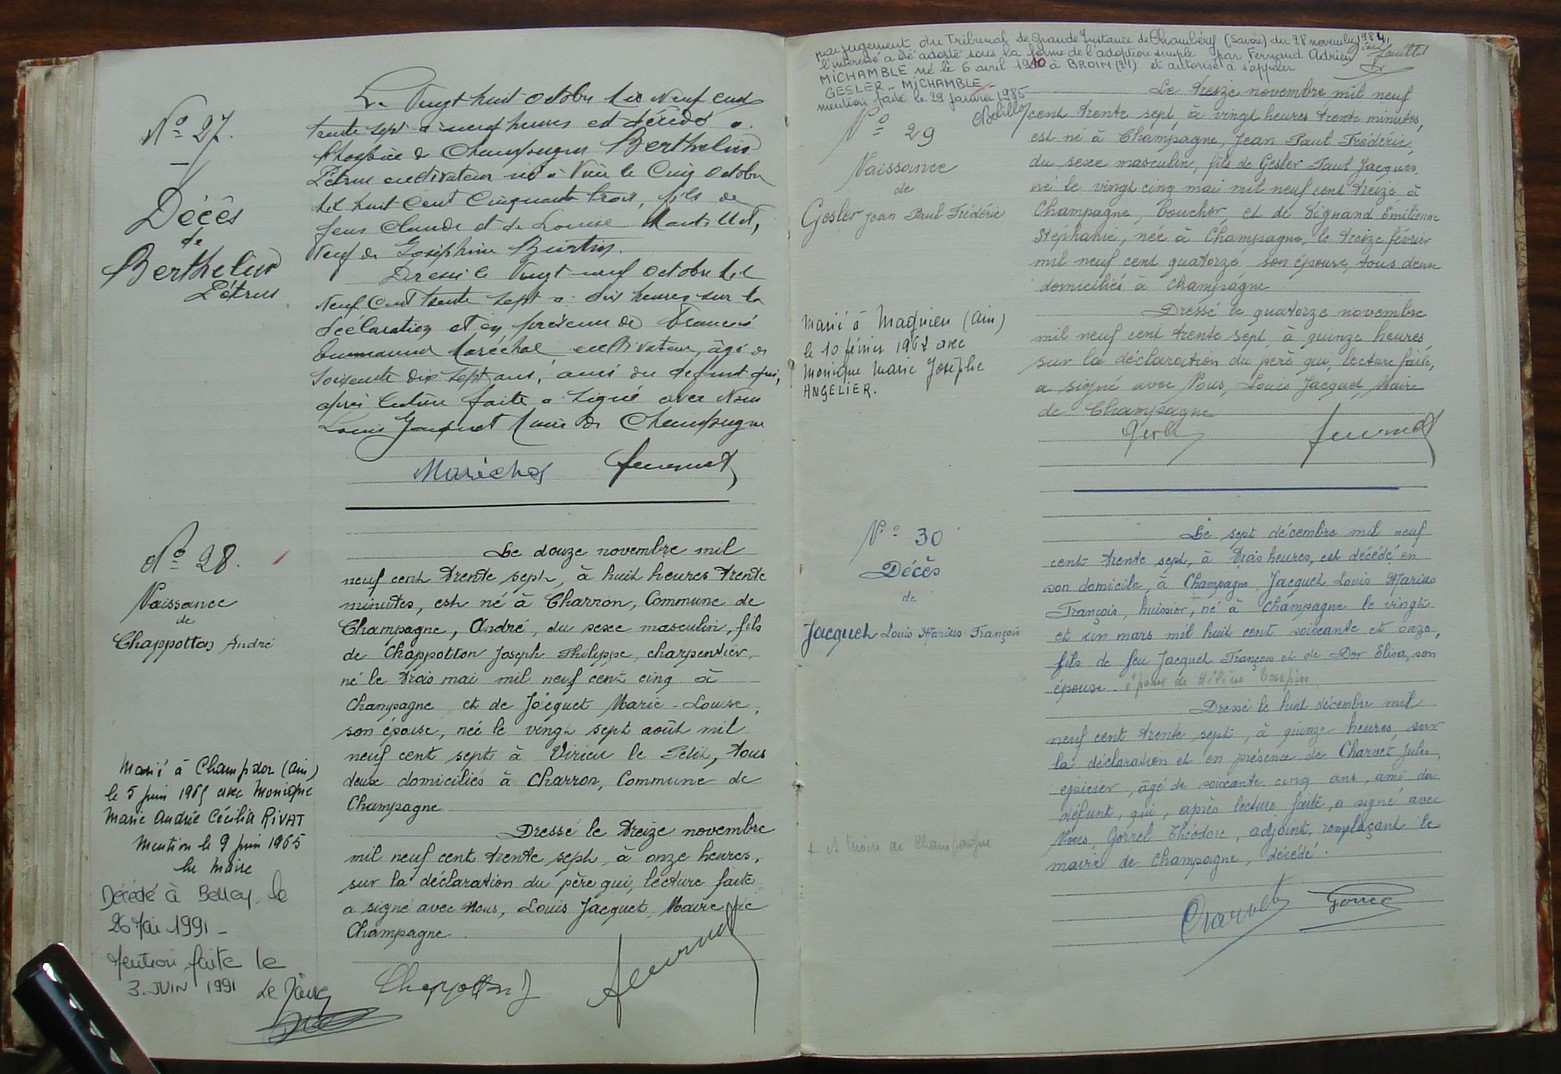 N° 27.
Décès
de
Berthelier
Pétrus
Le Vingt huit octobre dix neuf cent
trente sept à neuf heures est décédé a
l'hospice de Champagne Berthelier
Pétrus cultivateur né à Vieu le Cinq octobre
dix huit cent Cinquante trois, fils de
feus Claude et de Louise
Veuf de Joséphine
Dressé le Vingt neuf octobre dix
Neuf Cent trente sept a dix heures sur la
déclaration et en présence de François
Emmanuel Maréchal cultivateur, âgé de
Soixante dix sept ans, ami du défunt qui,
après lecture faite a signé avec Nous
Louis Jacquet Maire de Champagne
Maréchal
N° 28.
Naissance
de
Chappotton André
Marié à Champdor (Ain)
le 5 juin 1965 avec Monique
Marie Andrée Cécilia RIVAT
Mention le 9 juin 1965
le Maire
Décédé à Belley le
26 Mai 1991 -
Mention faite le
3. JUIN 1991 Le Maire
Le douze novembre mil
neuf cent trente sept, à huit heures trente
minutes, est né à Charron, Commune de
Champagne, André, du sexe masculin, fils
de Chappotton Joseph Philippe, charpentier,
né le trois mai mil neuf cent cinq à
Champagne et de Jacquet Marie-Louise,
son épouse, née le vingt sept août mil
neuf cent sept à Virieu le Petit, tous
deux domiciliés à Charron, Commune de
Champagne
Dressé le treize novembre
mil neuf cent trente sept, à onze heures,
sur la déclaration du père qui, lecture faite
a signé avec Nous, Louis Jacquet, Maire de
Champagne.
Chappotton J
par jugement du Tribunal de Grande Instance de Chambéry (Savoie) du 28 novembre 1984,
l'intéressé a été adopté sous la forme de l'adoption simple par Fernand Adrien
MICHAMBLE né le 6 avril 1910 à et autorisé à s'appeler
GESLER - MICHAMBLE
mention faite le 29 janvier 1985
N° 29
Naissance
de
Gesler Jean Paul Frédéric
Marié à Magnieu (Ain)
le 10 février 1962 avec
Monique Marie Josèphe
ANGELIER.
Le treize novembre mil neuf
cent trente sept, à vingt heures trente minutes,
est né à Champagne, Jean Paul Frédéric,
du sexe masculin, fils de Gesler Paul Jacques
né le vingt cinq mai mil neuf cent treize à
Champagne, boucher, et de Vignand Emilienne
Stéphanie, née à Champagne, le treize février
mil neuf cent quatorze son épouse, tous deux
domiciliés à Champagne
Dressé le quatorze novembre
mil neuf cent trente sept, à quinze heures,
sur la déclaration du père qui, lecture faite,
a signé avec Nous, Louis Jacquet, Maire
de Champagne
N° 30
Décès
de
Jacquet Louis Marius François
+ Maire de Champagne
Le sept décembre mil neuf
cent trente sept, à trois heures, est décédé en
son domicile, à Champagne Jacquet Louis Marius
François, huissier, né à Champagne le vingt
et un mars mil huit cent soixante et onze,
fils de feu Jacquet François et de Dor Elisa, son
épouse. époux de
Dressé le huit décembre mil
neuf cent trente sept, à quinze heures, sur
la déclaration et en présence de Charvet Jules,
épicier, âgé de soixante cinq ans, ami du
défunt, qui, après lecture faite, a signé avec
Nous, Gorrel Théodore, adjoint, remplaçant le
maire de Champagne, décédé.
Charvet